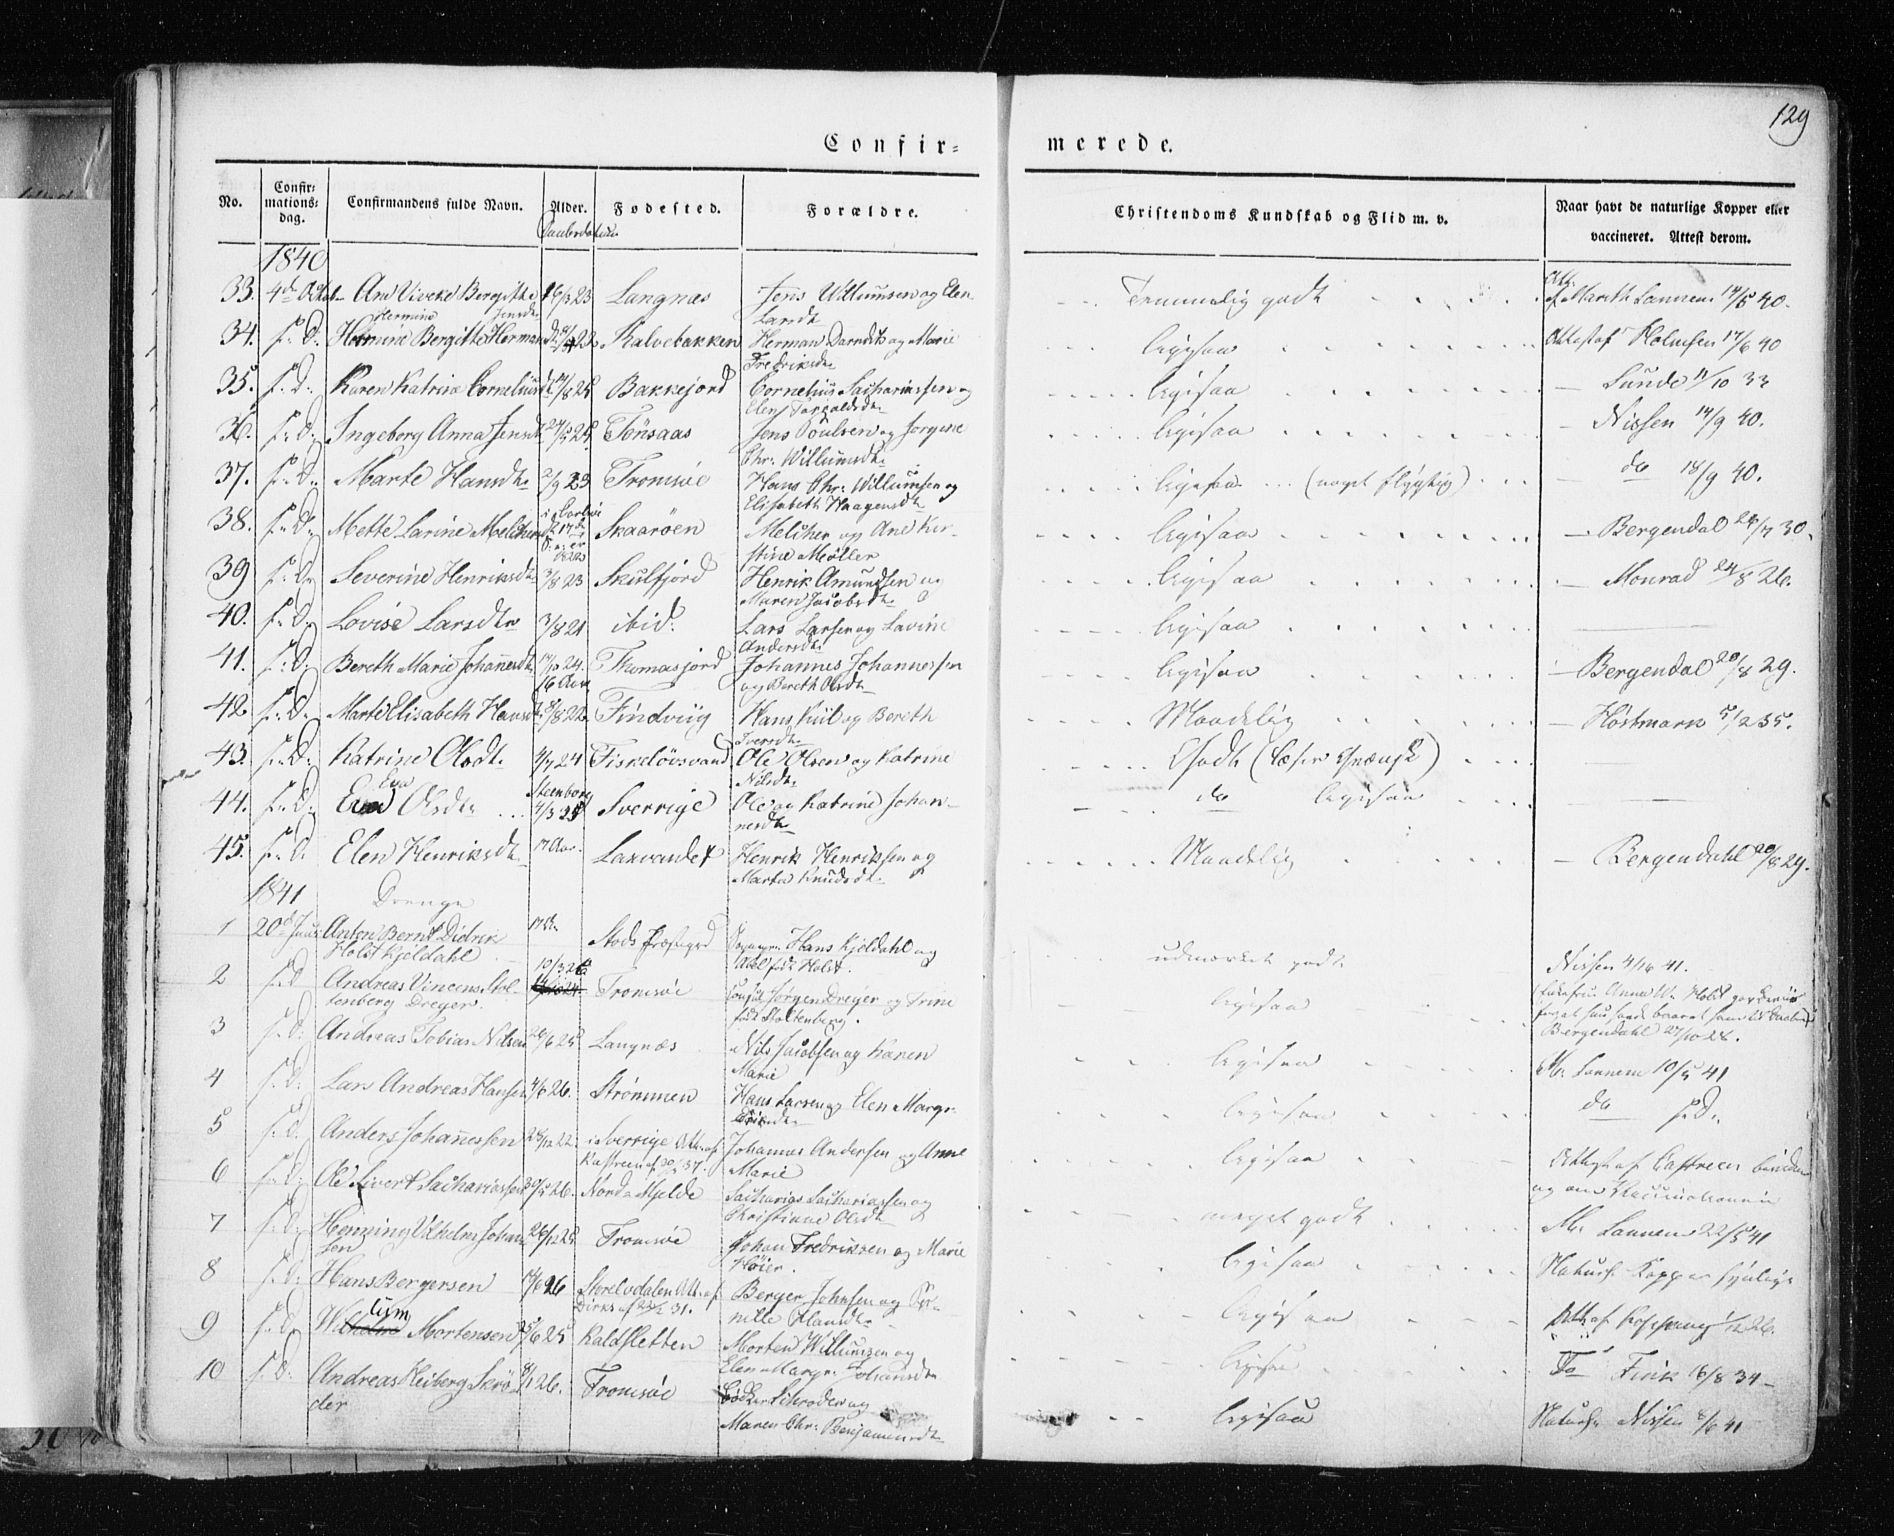 129
Confir= merede.
No. Confir= mations= dag. Confirmandens fulde Navn. Alder. Fødested. Forældre. Christendoms Kundskab og Flid m. v. Naar havt de naturlige Kopper eller vaccineret. Attest derom.
1840
33. 4de Octob Ane Viveke Bergitte Jensdtr 16/3 23 Langnæs Jens Willumsen og Elen Larsdtr Temmelig godt Marith Lannem 14/5 40.
34. s. D. Hermine Bergitte Hermansd Kalvebakken Herman Darndts og Marie Fredriksdtr ligesaa Attest af Holmsen 17/6 40
35. s. D. Karen Katrina Cornelius 14/8 25 Bakkejord Cornelius Sachariassen og Elen Torgaldsdtr ligesaa – Lunde 11/10 33
36. s. D. Ingeborg Anna Jensdt 27/5 25 Tønsaas Jens Poulsen og Jorgine Chr. Willumsdtr ligesaa – Nissen 14/9 40.
37. s. D. Marte Hansdtr 2/9 23 Tromsøe Hans Chr. Willumsen og Elisabeth Haagensdtr ligesaa (noget flygtig) do 18/9 40.
38. s. D. Mette Larine Melcher 17 Skaarøen Melcher og Ane Kirstine Møller ligesaa – Bergendal 28/7 30.
39 s. D. Severine Henriksdtr 3/8 23 Skulfjord Henrik Amundsen og Maren Jacobsdtr ligesaa – Monrad 24/8 26.
40. s. D. Lovise Larsdtr 3/8 21 ibid. Lars Larsen og Lavine Andersdtr ligesaa
41. s. D. Bereth Marie Johannesdtr 17/10 24. 16 Aar Thomasjord Johannes Johannessen og Bereth Olsdtr ligesaa – Bergendal 20/8 29.
42. s. D. Marte Elisabeth Hansdt 8/8 22 Findviig Hans Kiil og Bereth Iversdtr Maadelig – Høstmark 5/2 35.
43. s. D. Katrine Olsdt. 4/7 24 Fiskeløvsvand Ole Olsen og Katrine Nilsdtr Godt (Læser Svænsk)
44. s. D. Eva Eva Olsdtr Steenborg 4/3 25 Sverrige Ole og Katrine Johannesdtr do ligesaa
45. s. D. Elen Henriksdtr 17 Aar. Laxvandet Henrik Henriksen og Marta Knudsdtr Maadelig – Bergendahl 20/8 29.
1841 Drenge
1 20de Juni Anton Bernt Didrik Holst Kjeldahl 17 A. Stods Præstegjd Hans Kjeldahl og Abel født Holst. udmærket godt Nissen 4/16 41.
2 s. D Andreas Vincens Stoltenberg Dreyer. 10/3 26 Tromsøe Consul Jørgen Dreyer og Trine født Stoltenberg. ligesaa Anna W. Holst
3 s. D. Andreas Tobias Nilsen 20/6 25 Langnæs Nils Jacobsen og Karen Marie ligesaa Bergendahl 27/10 28.
4 s. D. Lars Andreas Hansen 4/6 26. Strømmen Hans Larsen og Elen Margr. ligesaa M. Lannem 10/5 41
5 s. D. Anders Johannessen 28/12 22. i Sverrige Att. af Kastreen af 30/5 37. Johannes Andersen og Anne Marie ligesaa do s. D.
6 s. D. Ole Sivert Sachariassen 30/5 26. Nord Mjelde Sacharias Sachariassen og Christiane Olsdtr meget godt Attest af Castreen
7 s. D. Henning Vilhelm Johansen 26/12 25 Tromsøe Johan Fredriksen og Marie Høier. ligesaa M. Lannem 22/5 41
8 s. D. Hans Bergersen 14/6 26 Storelvdalen Att. af Dirks af 31. Berger Johnsen og Pernille Hansdtr ligesaa Naturl. Kopper synlige
9 s. D. Willum Mortensen 25/6 25 Kaldsletten Morten Willumsen og Elen Margr. Johansdtr ligesaa Att. af
10 s. D. Andreas Heiberg Skrøder 8/1 26. Tromsøe Schrøder og Maren Chr. Benjaminsdtr ligesaa Do Fink 16/8 34 –
Naturl. Nissen 8/6 41